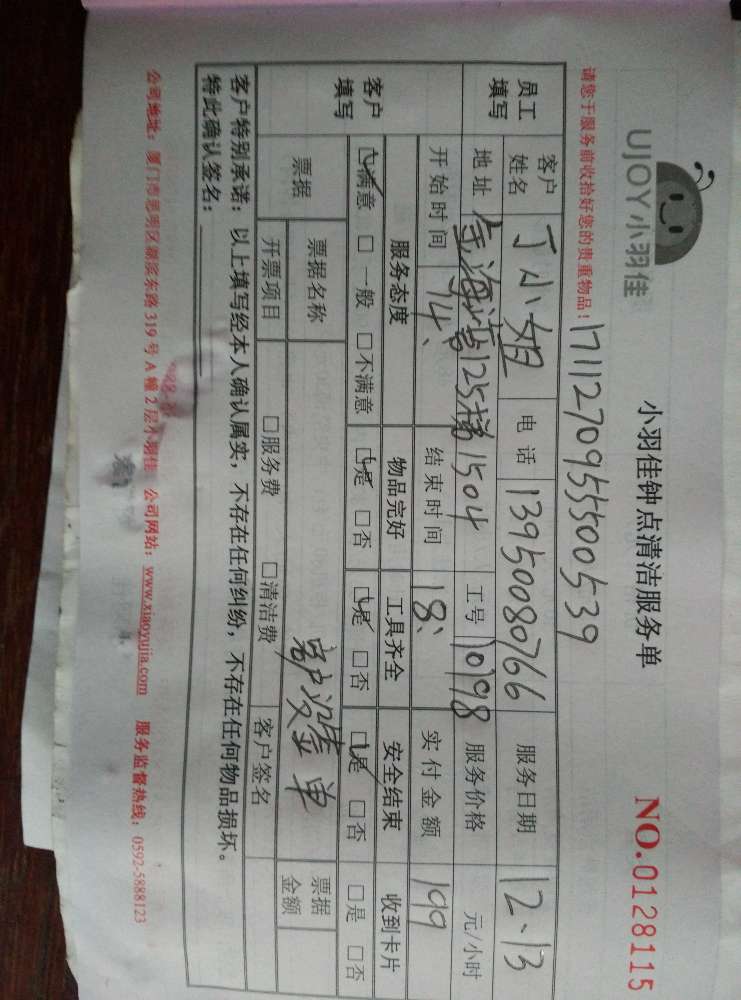 UJOY小羽佳
小羽佳钟点清洁服务单
NO.0128115
请您于服务前收拾好您的贵重物品！
17112709555500539
员工填写 客户姓名 丁小姐 电话 13950080766 服务日期 12、13
地址 金海湾125梯1504 工号 1098 服务价格 元/小时
开始时间 14、 结束时间 18、 实付金额 199
客户填写 服务态度 物品完好 工具齐全 安全结束 收到卡片
☑满意 □一般 □不满意 ☑是 □否 ☑是 □否 ☑是 □否 □是 □否
票据 票据名称 客户没签单 票据金额
开票项目 □服务费 □清洁费 客户签名
客户特别承诺：以上填写经本人确认属实，不存在任何纠纷，不存在任何物品损坏。
特此确认签名：
公司地址：厦门市思明区湖滨东路319号A幢2层小羽佳 公司网站：www.xiaoyujia.com 服务监督热线：0592-5888123